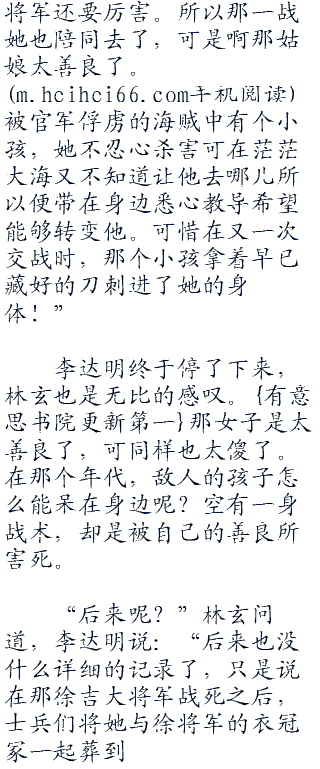 将军还要厉害。所以那一战
她也陪同去了，可是啊那姑
娘太善良了。
(m.hcihci66.com手机阅读)
被官军俘虏的海贼中有个小
孩，她不忍心杀害可在茫茫
大海又不知道让他去哪儿所
以便带在身边悉心教导希望
能够转变他。可惜在又一次
交战时，那个小孩拿着早已
藏好的刀刺进了她的身
体！”
李达明终于停了下来，
林玄也是无比的感叹。{有意
思书院更新第一}那女子是太
善良了，可同样也太傻了。
在那个年代，敌人的孩子怎
么能呆在身边呢？空有一身
战术，却是被自己的善良所
害死。
“后来呢？”林玄问
道，李达明说：“后来也没
什么详细的记录了，只是说
在那徐吉大将军战死之后，
士兵们将她与徐将军的衣冠
冢一起葬到